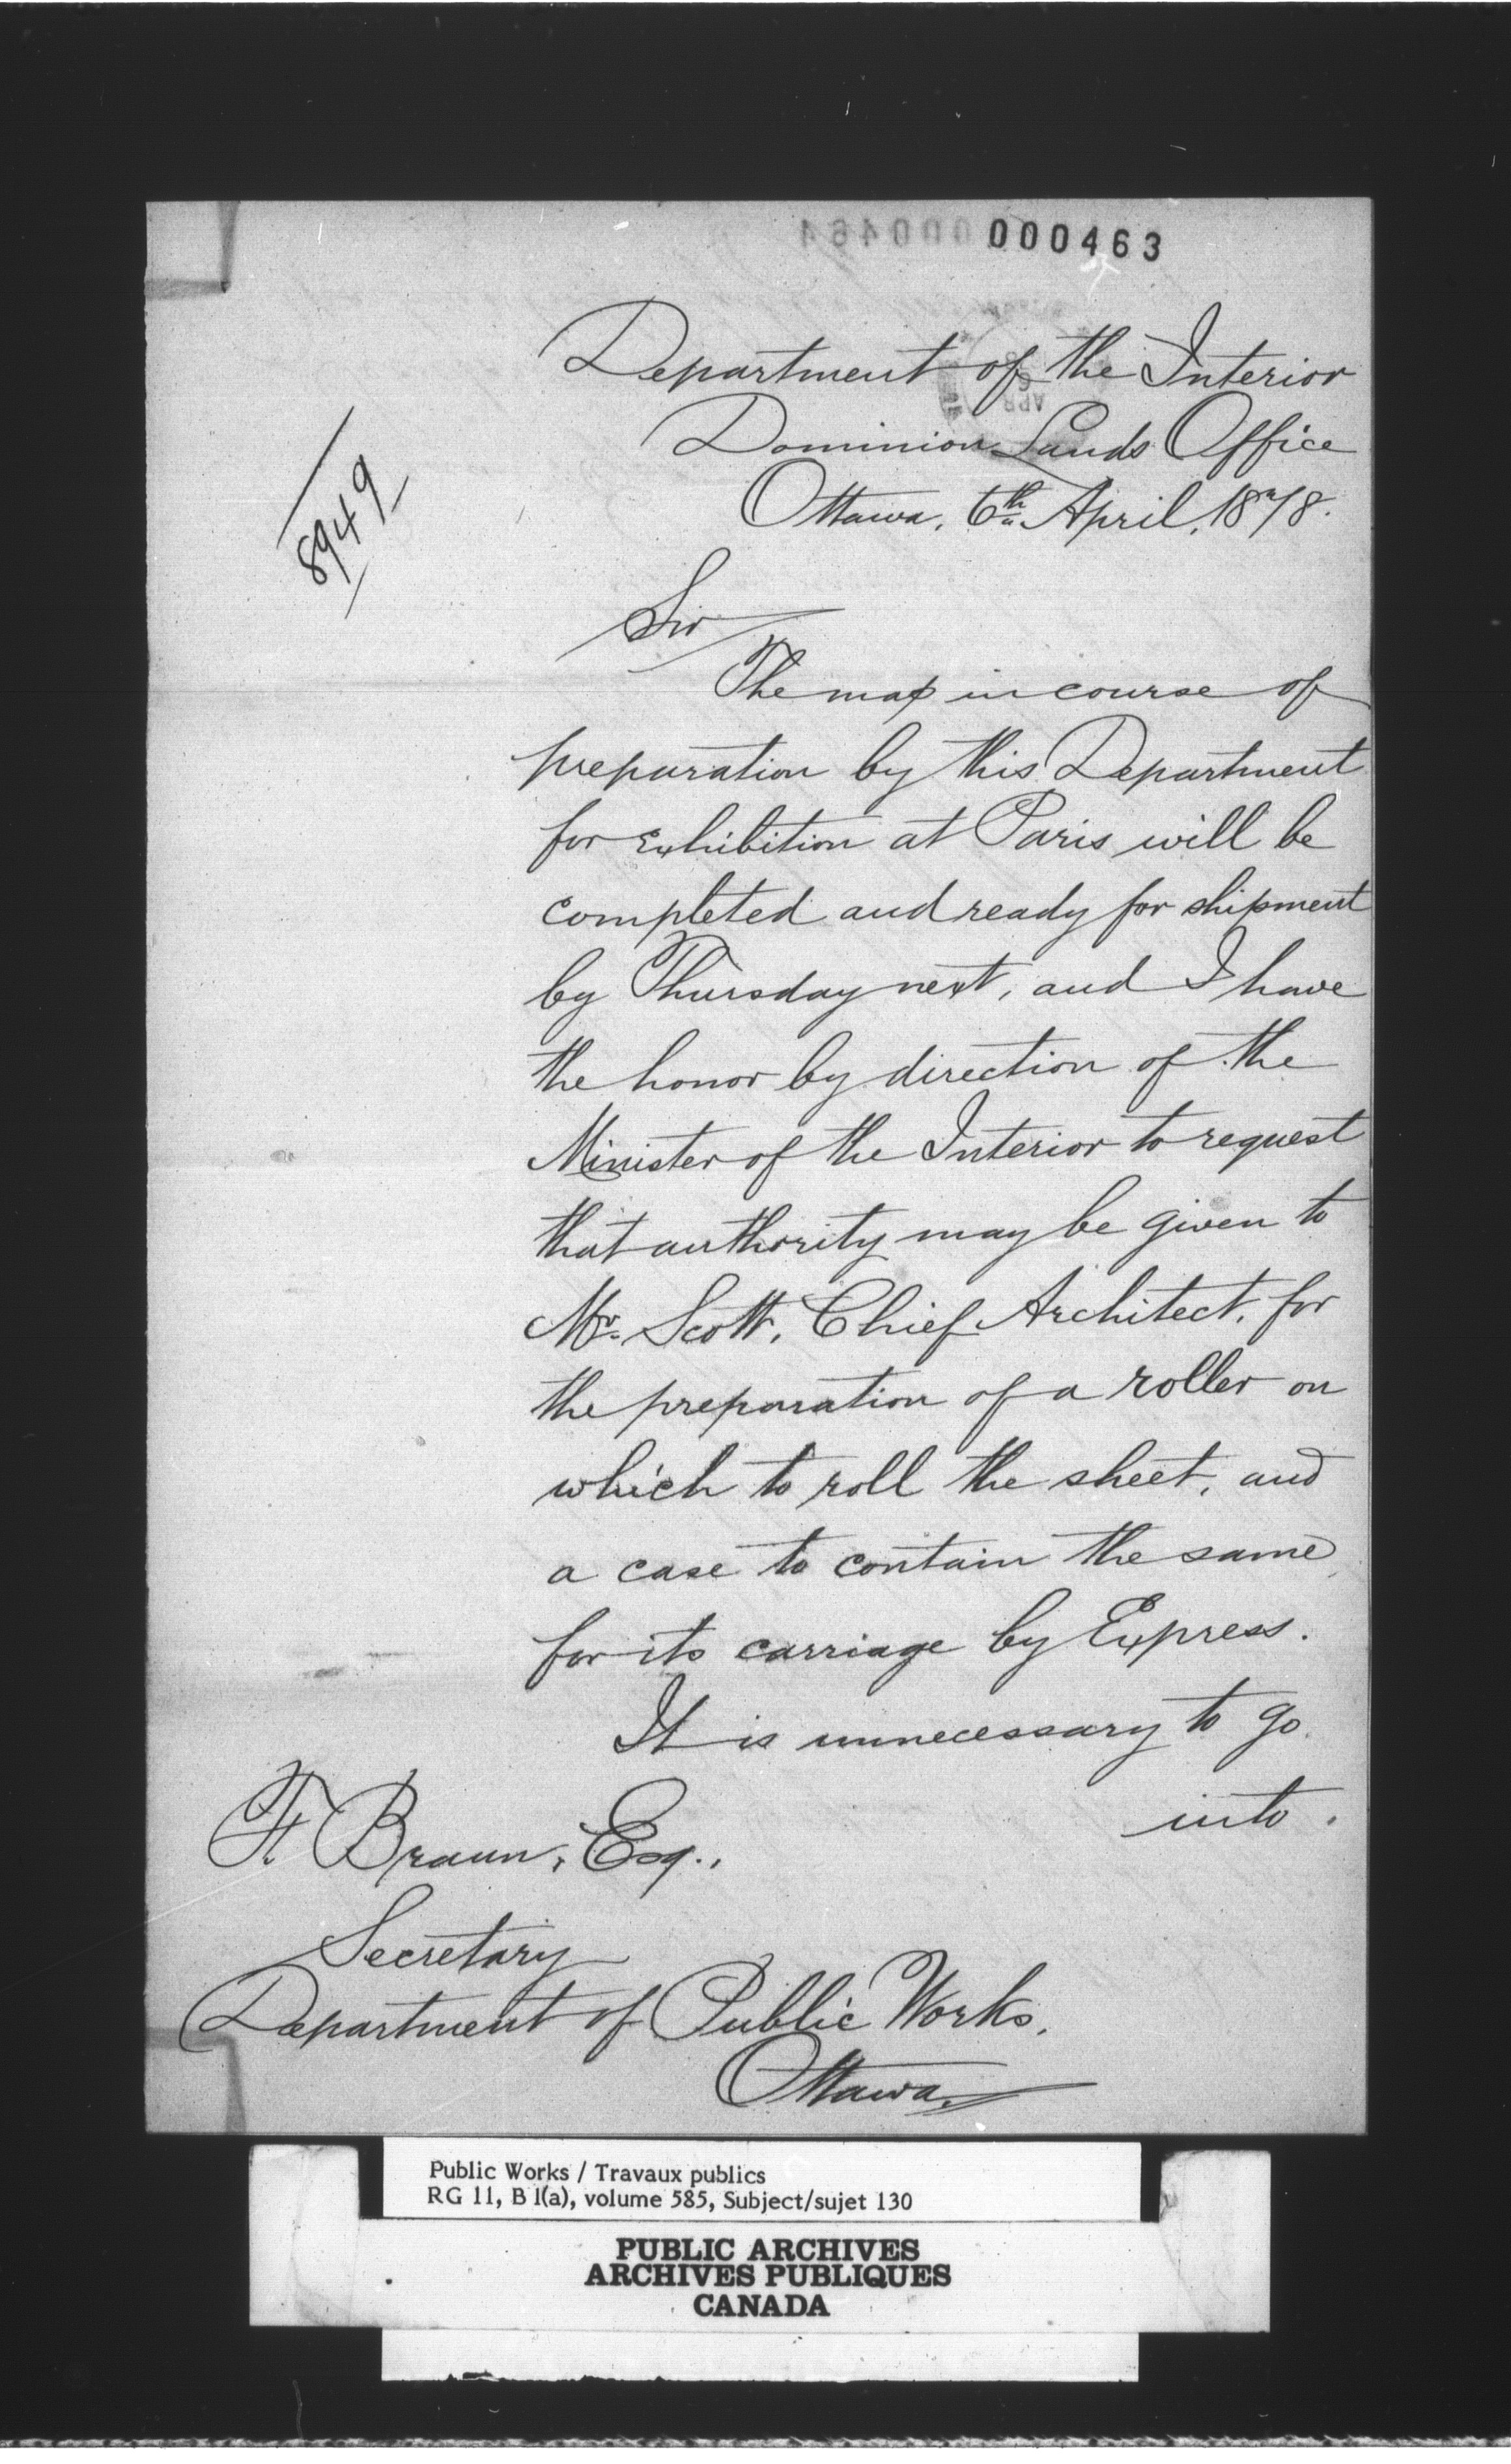 000463
Department of the Interior
Dominion Lands Office
Ottawa, 6th April, 1878.
8949
Sir
The map in course of
preparation by this Department
for Exhibition at Paris will be
completed and ready for shipment
by Thursday next, and I have
the honor by direction of the
Minister of the Interior to request
that authority may be given to
Mr. Scott, Chief Architect, for
the preparation of a roller on
which to roll the sheet, and
a case to contain the same
for its carriage by Express.
It is unnecessary to go
into.
F. Braun, Esq.,
Secretary
Department of Public Works.
Ottawa.
Public Works / Travaux publics
RG 11, B 1(a), volume 585, Subject/sujet 130
PUBLIC ARCHIVES
ARCHIVES PUBLIQUES
CANADA